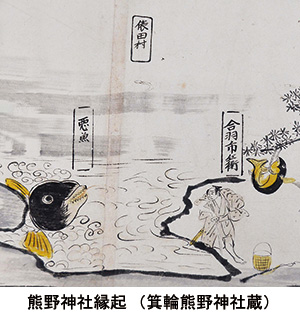 俵田村
合羽市衛
悪魚
熊野神社縁起 （箕輪熊野神社蔵）